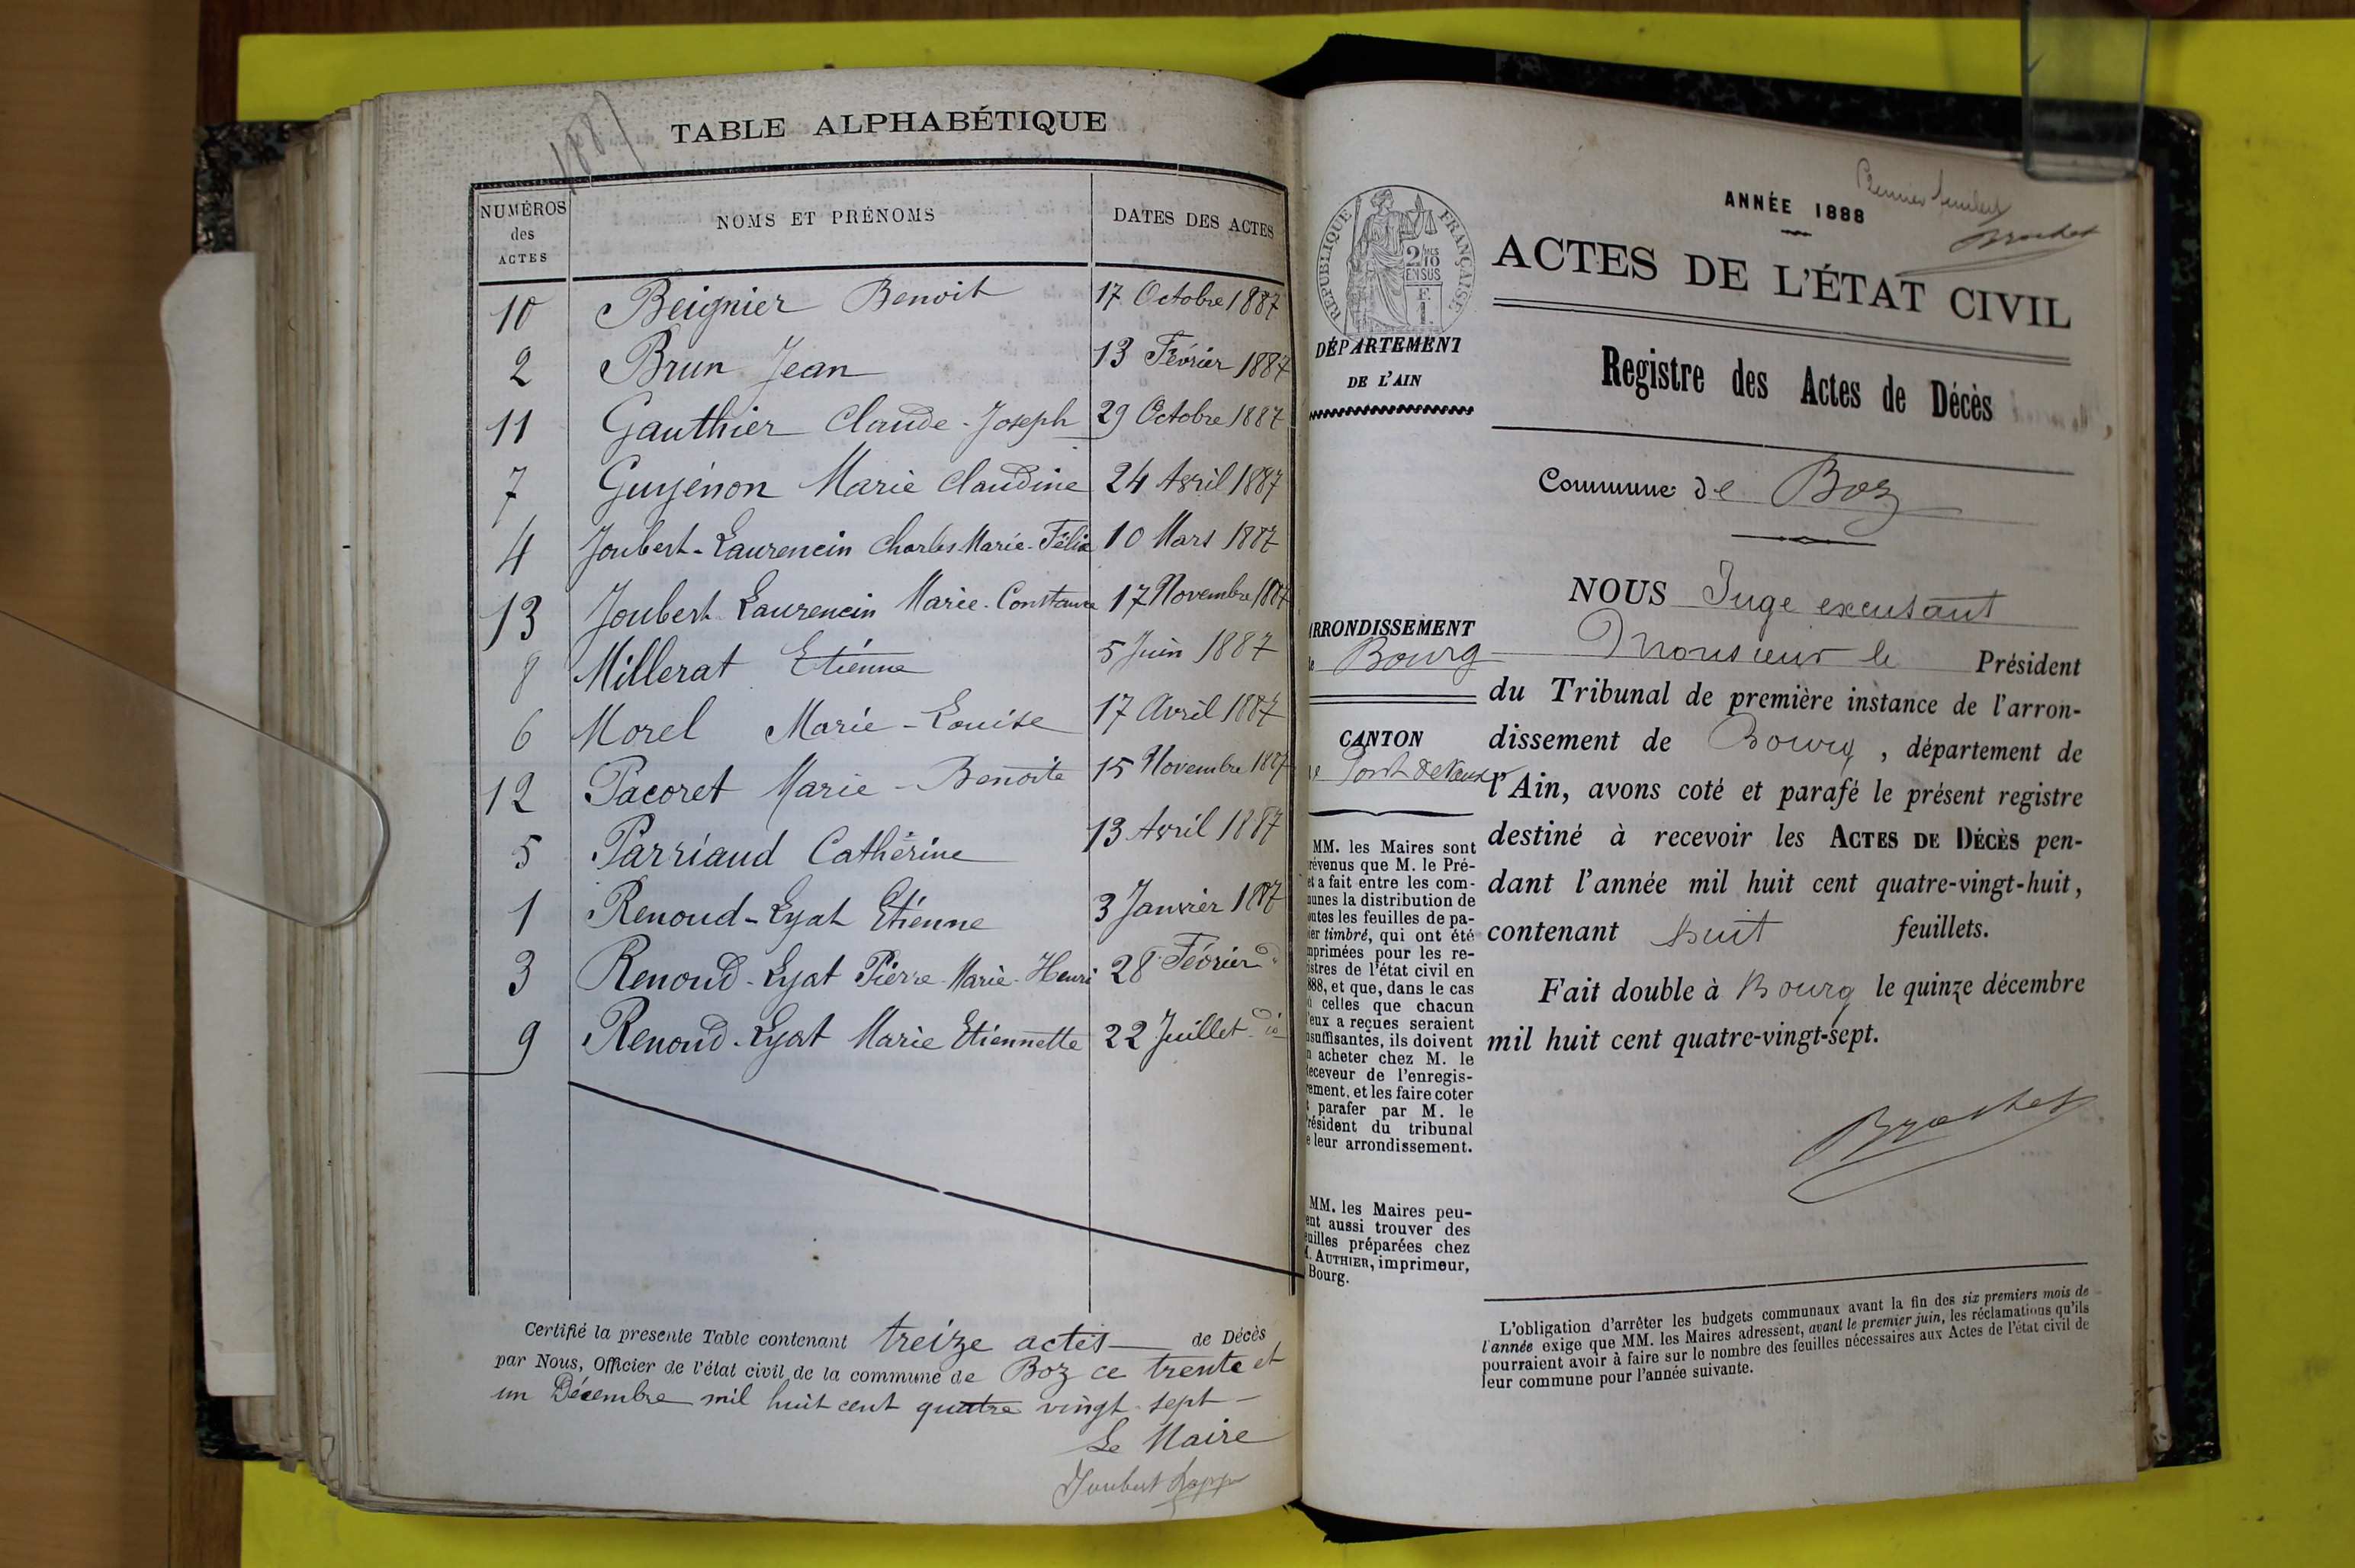 1887
TABLE ALPHABÉTIQUE
NUMÉROS des ACTES
NOMS ET PRÉNOMS
DATES DES ACTES
10 Beignier Benoit 17 Octobre 1887
2 Brun Jean 13 Février 1887
11 Gauthier Claude-Joseph 29 Octobre 1887
7 Guyénon Marie Claudine 24 Avril 1887
4 Joubert-Laurencin Charles Marie-Félix 10 Mars 1887
13 Joubert Laurencin Marie-Constance 17 Novembre 1887
8 Millerat Etienne 5 Juin 1887
6 Morel Marie-Louise 17 Avril 1887
12 Pacoret Marie-Benoite 15 Novembre 1887
5 Parriaud Cathérine 13 Avril 1887
1 Renoud-Lyat Etienne 3 Janvier 1887
3 Renoud-Lyat Pierre-Marie-Henri 28 Février d°
9 Renoud-Lyat Marie Etiennette 22 Juillet d°
Certifié la presente Table contenant treize actes de Décès
par Nous, Officier de l'état civil de la commune de Boz ce trente et
un Décembre mil huit cent quatre vingt-sept
Le Maire
Joubert
RÉPUBLIQUE FRANÇAISE
2/10 EN SUS
F. 1
DÉPARTEMENT
DE L'AIN
ARRONDISSEMENT
Bourg
CANTON
Pont de Vaux
MM. les Maires sont
révenus que M. le Pré-
et a fait entre les com-
unes la distribution de
outes les feuilles de pa-
ier timbré, qui ont été
mprimées pour les re-
istres de l'état civil en
888, et que, dans le cas
ù celles que chacun
'eux a reçues seraient
nsuffisantes, ils doivent
n acheter chez M. le
eceveur de l'enregis-
rement, et les faire coter
t parafer par M. le
résident du tribunal
e leur arrondissement.
MM. les Maires peu-
ent aussi trouver des
euilles préparées chez
M. AUTHIER, imprimeur,
Bourg.
Premier feuillet
Brochet
ANNÉE 1888
ACTES DE L'ÉTAT CIVIL
Registre des Actes de Décès
Commune de Boz
NOUS Juge excusant
Monsieur le Président
du Tribunal de première instance de l'arron-
dissement de Bourg, département de
l'Ain, avons coté et parafé le présent registre
destiné à recevoir les ACTES DE DÉCÈS pen-
dant l'année mil huit cent quatre-vingt-huit,
contenant huit feuillets.
Fait double à Bourg le quinze décembre
mil huit cent quatre-vingt-sept.
Brochet
L'obligation d'arrêter les budgets communaux avant la fin des six premiers mois de
l'année exige que MM. les Maires adressent, avant le premier juin, les réclamations qu'ils
pourraient avoir à faire sur le nombre des feuilles nécessaires aux Actes de l'état civil de
leur commune pour l'année suivante.